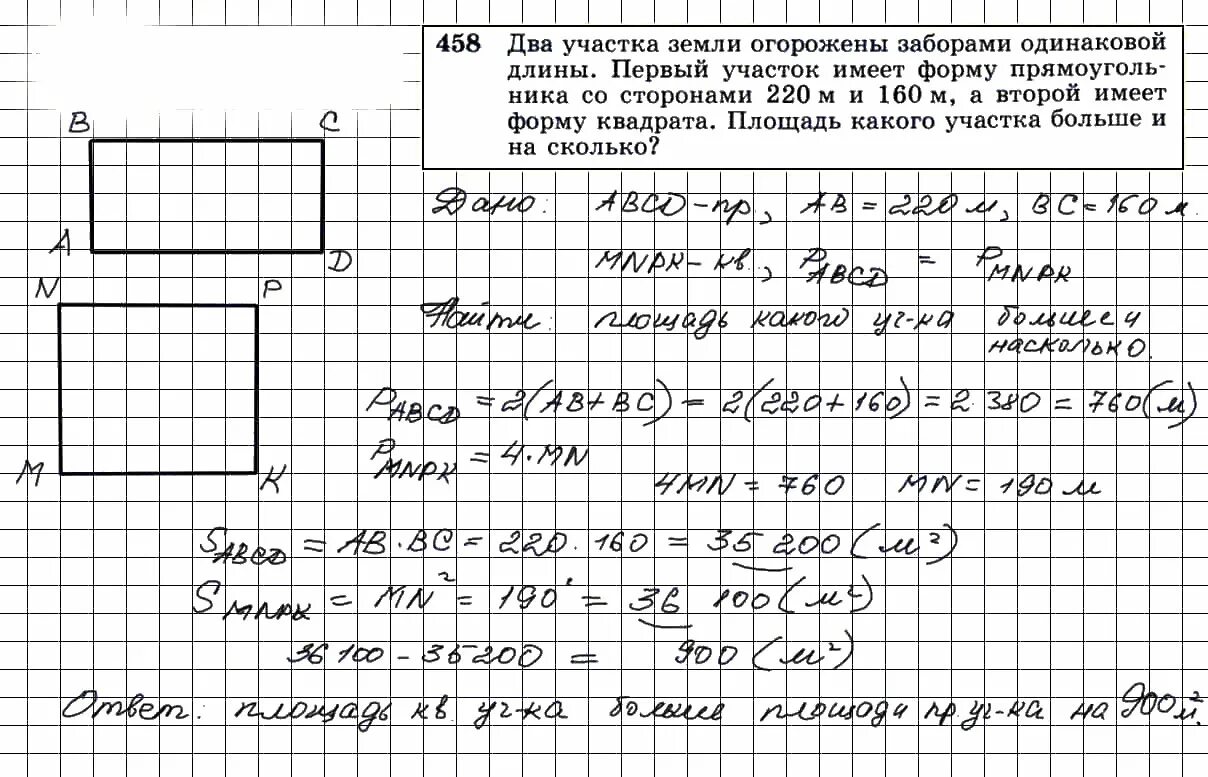 458 Два участка земли огорожены заборами одинаковой
длины. Первый участок имеет форму прямоуголь-
ника со сторонами 220 м и 160 м, а второй имеет
форму квадрата. Площадь какого участка больше и
на сколько?
B C
A D
N P
M K
Дано: ABCD-пр, AB = 220 м, BC = 160 м.
MNPK-кв., P_ABCD = P_MNPK
Найти: площадь какого уч-ка больше и
насколько.
P_ABCD = 2(AB+BC) = 2(220+160) = 2·380 = 760(м)
P_MNPK = 4·MN
4MN = 760 MN = 190 м
S_ABCD = AB·BC = 220·160 = 35 200 (м²)
S_MNPK = MN² = 190² = 36 100 (м²)
36 100 - 35 200 = 900 (м²)
Ответ: площадь кв. уч-ка больше площади пр. уч-ка на 900 м².